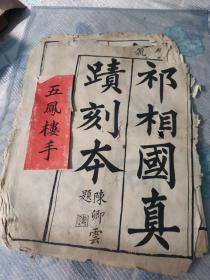 祁相國真
蹟刻本
陳卿雲
題
五鳳樓手